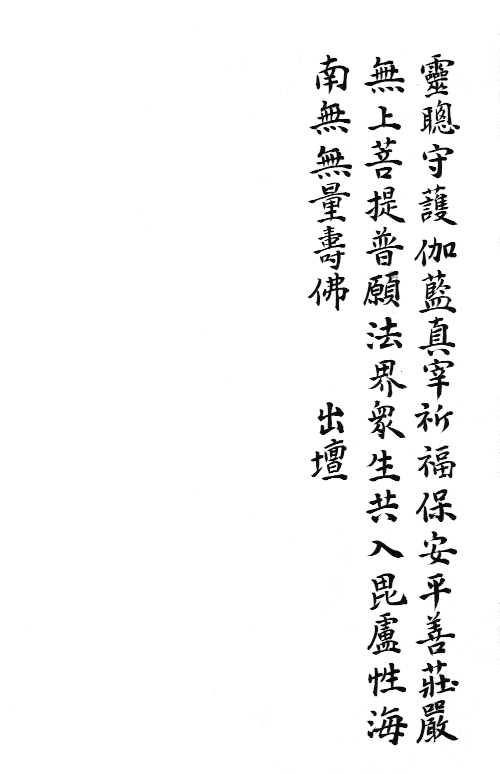 靈聰守護伽藍真宰祈福保安平善莊嚴
無上菩提普願法界眾生共入毘盧性海
南無無量壽佛　　出壇